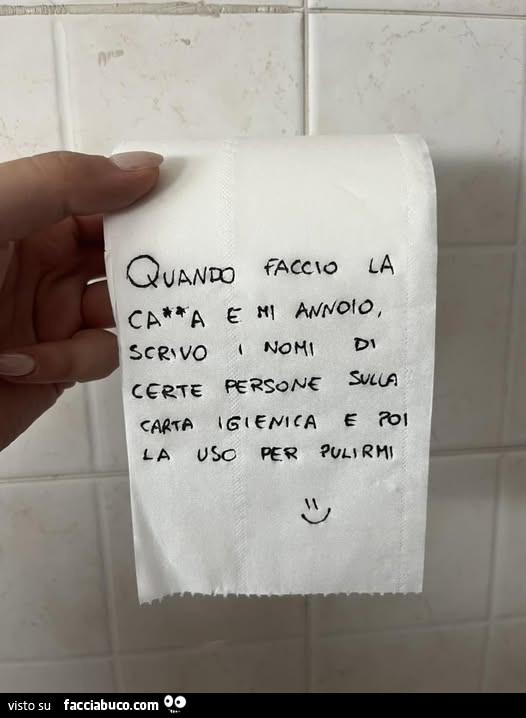 QUANDO FACCIO LA
CA**A E MI ANNOIO,
SCRIVO I NOMI DI
CERTE PERSONE SULLA
CARTA IGIENICA E POI
LA USO PER PULIRMI
visto su facciabuco.com